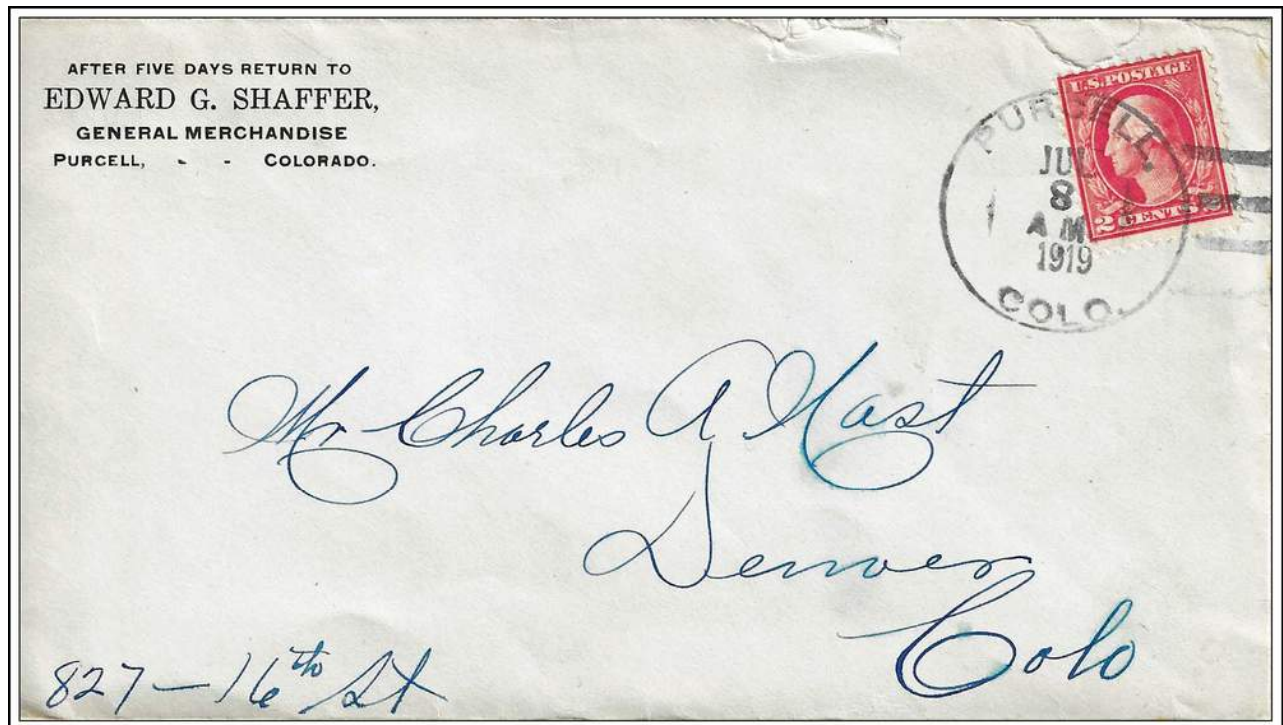 AFTER FIVE DAYS RETURN TO
EDWARD G. SHAFFER,
GENERAL MERCHANDISE
PURCELL, - - COLORADO.
U.S. POSTAGE
2 CENTS 2
PURCELL,
JUL
8
A M
1919
COLO.
Mr Charles A Nast
Denver
Colo
827 - 16th St